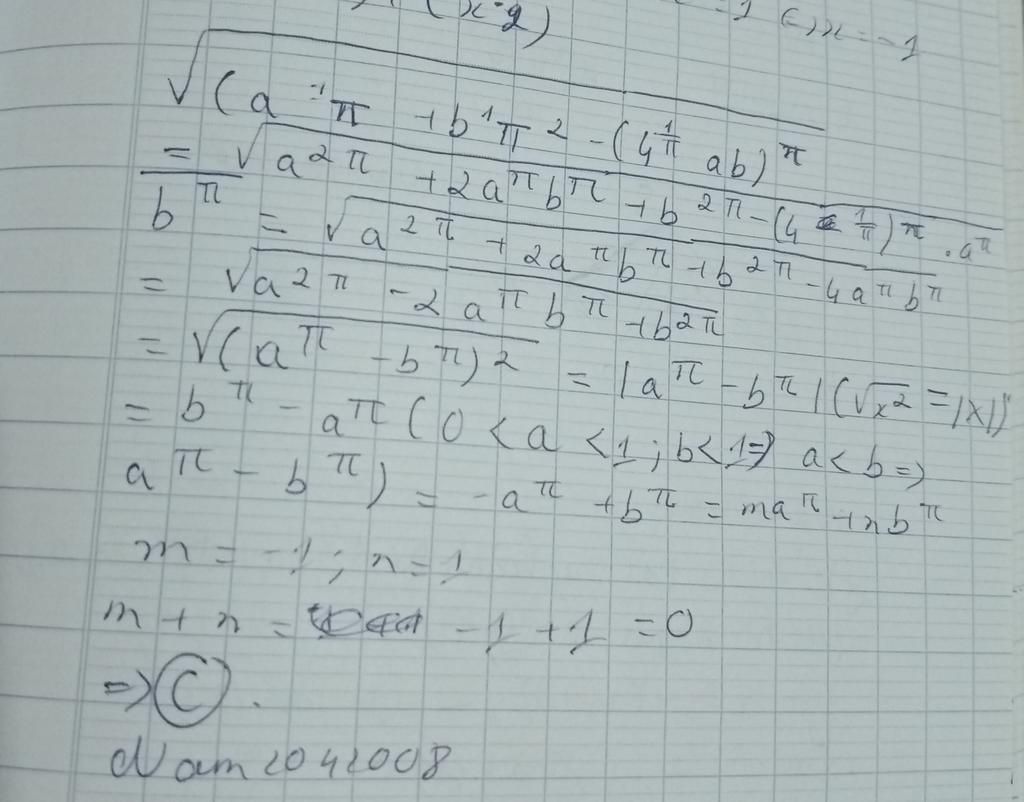 (x-2) = 1 <=> x = -1
√(a^-1 π + b^1 π^2 - (4^(1/π) ab)^π
= √a^2π + 2a^π b^π + b^2π - (4 1/π)^π . a^π
b^π = √a^2π + 2a^π b^π + b^2π - 4a^π b^π
= √a^2π - 2a^π b^π + b^2π
= √(a^π - b^π)^2 = |a^π - b^π| (√x^2 = |x|)
= b^π - a^π (0 < a < 1; b < 1 => a < b =>
a^π - b^π) = -a^π + b^π = ma^π + nb^π
m = -1; n = 1
m + n = -1 + 1 = 0
=> C.
Nam 2042008